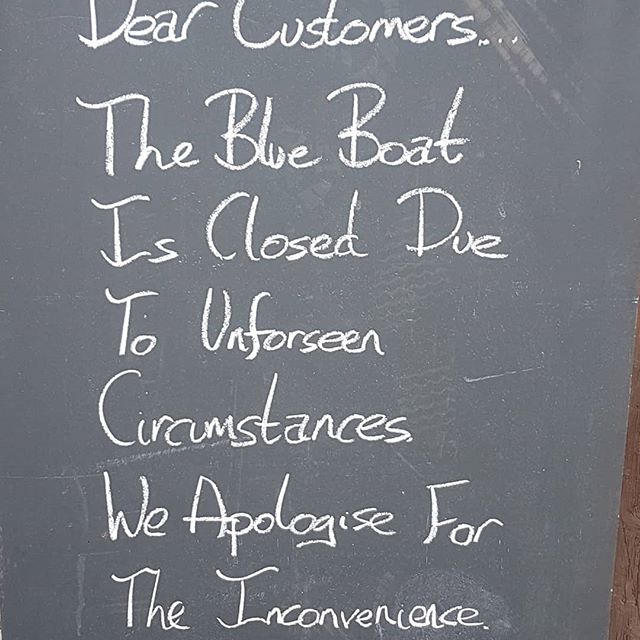 Dear Customers...
The Blue Boat
Is Closed Due
To Unforseen
Circumstances.
We Apologise For
The Inconvenience.